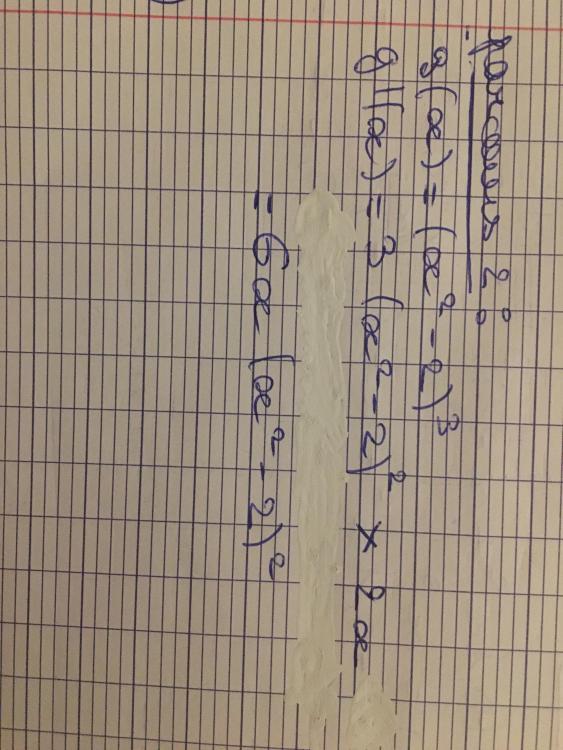 parcours 2 :
g(x) = (x² - 2)³
g'(x) = 3 (x² - 2)² × 2x
= 6x (x² - 2)²